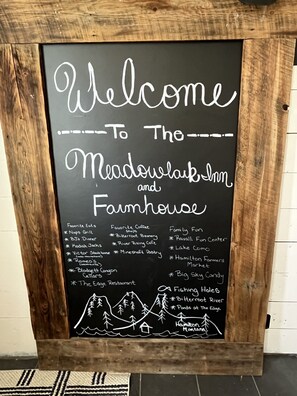 Welcome
To The
Meadowlark Inn
and
Farmhouse
Favorite Eats
Naps Grill
BJs Dinner
Bitter Steakhouse
Romeo's
Blodgett Canyon
Cellars
The Edge Restaurant
Favorite Coffee
Shops
Bitterroot Brewery
River Rising Cafe
Mineshaft Pastry
Family Fun
Ravalli Fun Center
Lake Como
Hamilton Farmers
Market
Big Sky Candy
Fishing Holes
Bitterroot River
Ponds at The Edge
Hamilton
Montana